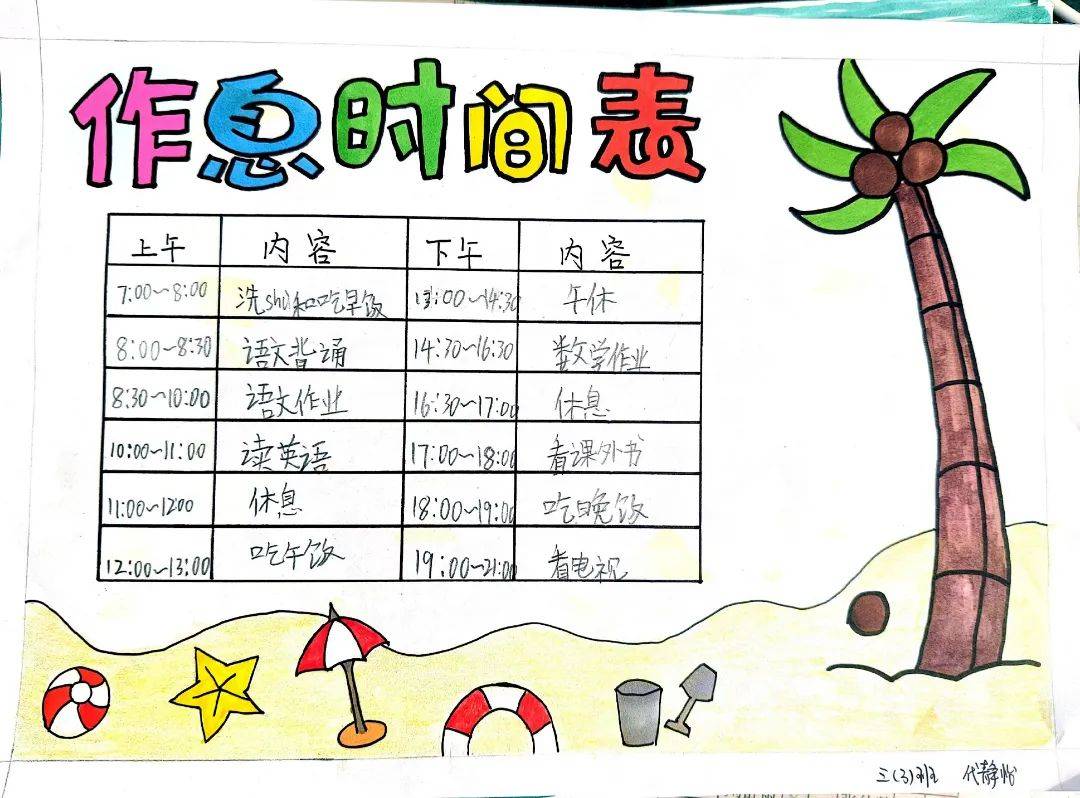 作息时间表
上午 内容 下午 内容
7:00~8:00 洗shù和吃早饭 13:00~14:30 午休
8:00~8:30 语文背诵 14:30~16:30 数学作业
8:30~10:00 语文作业 16:30~17:00 休息
10:00~11:00 读英语 17:00~18:00 看课外书
11:00~1200 休息 18:00~19:00 吃晚饭
12:00~13:00 吃午饭 19:00~21:00 看电视
三(3)班 代静怡